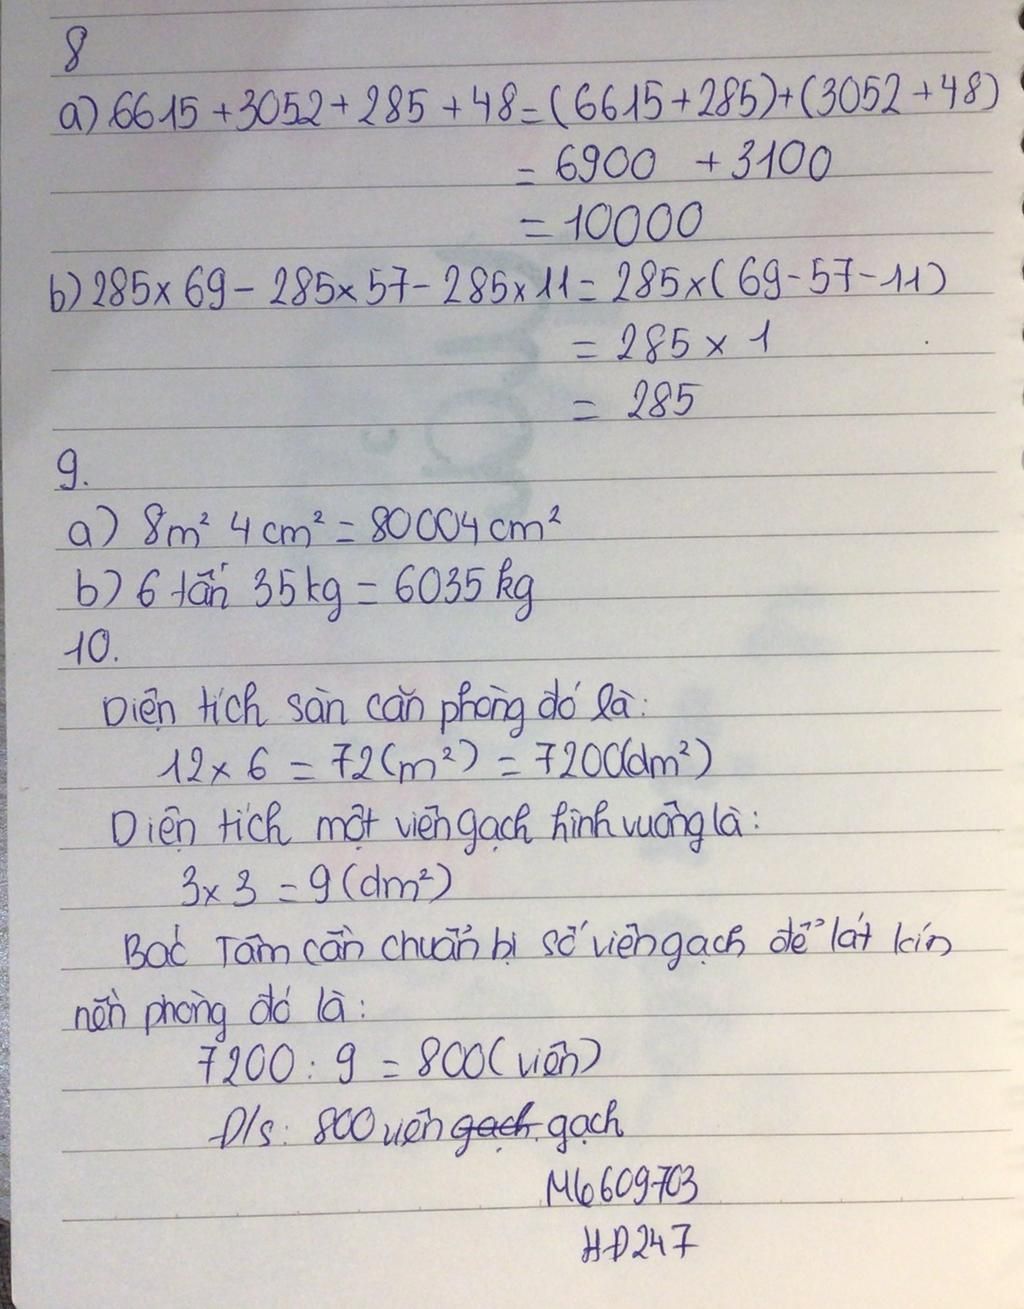 8
a) 6615 + 3052 + 285 + 48 = (6615 + 285) + (3052 + 48)
= 6900 + 3100
= 10000
b) 285 x 69 - 285 x 57 - 285 x 11 = 285 x (69 - 57 - 11)
= 285 x 1
= 285
9.
a) 8m² 4cm² = 80004cm²
b) 6 tấn 35kg = 6035kg
10.
Diện tích sàn căn phòng đó là:
12 x 6 = 72(m²) = 7200(dm²)
Diện tích một viên gạch hình vuông là:
3 x 3 = 9(dm²)
Bác Tâm cần chuẩn bị số viên gạch để lát kín
nền phòng đó là:
7200 : 9 = 800(viên)
Đ/s: 800 viên gạch gạch
M6609703
HD247